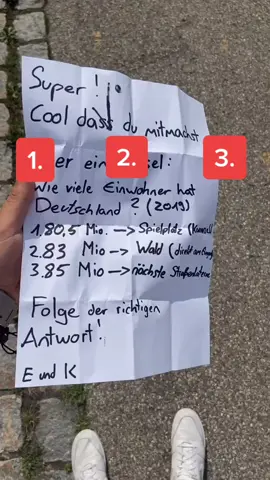 Super!
Cool dass du mitmachst
1. 2. 3.
er ein sel:
Wie viele Einwohner hat
Deutschland? (2019)
1.80,5 Mio. —> Spielplatz
2.83 Mio —> Wald (direkt am
3.85 Mio —> nächste Straßenlaterne
Folge der richtigen
Antwort!
E und K